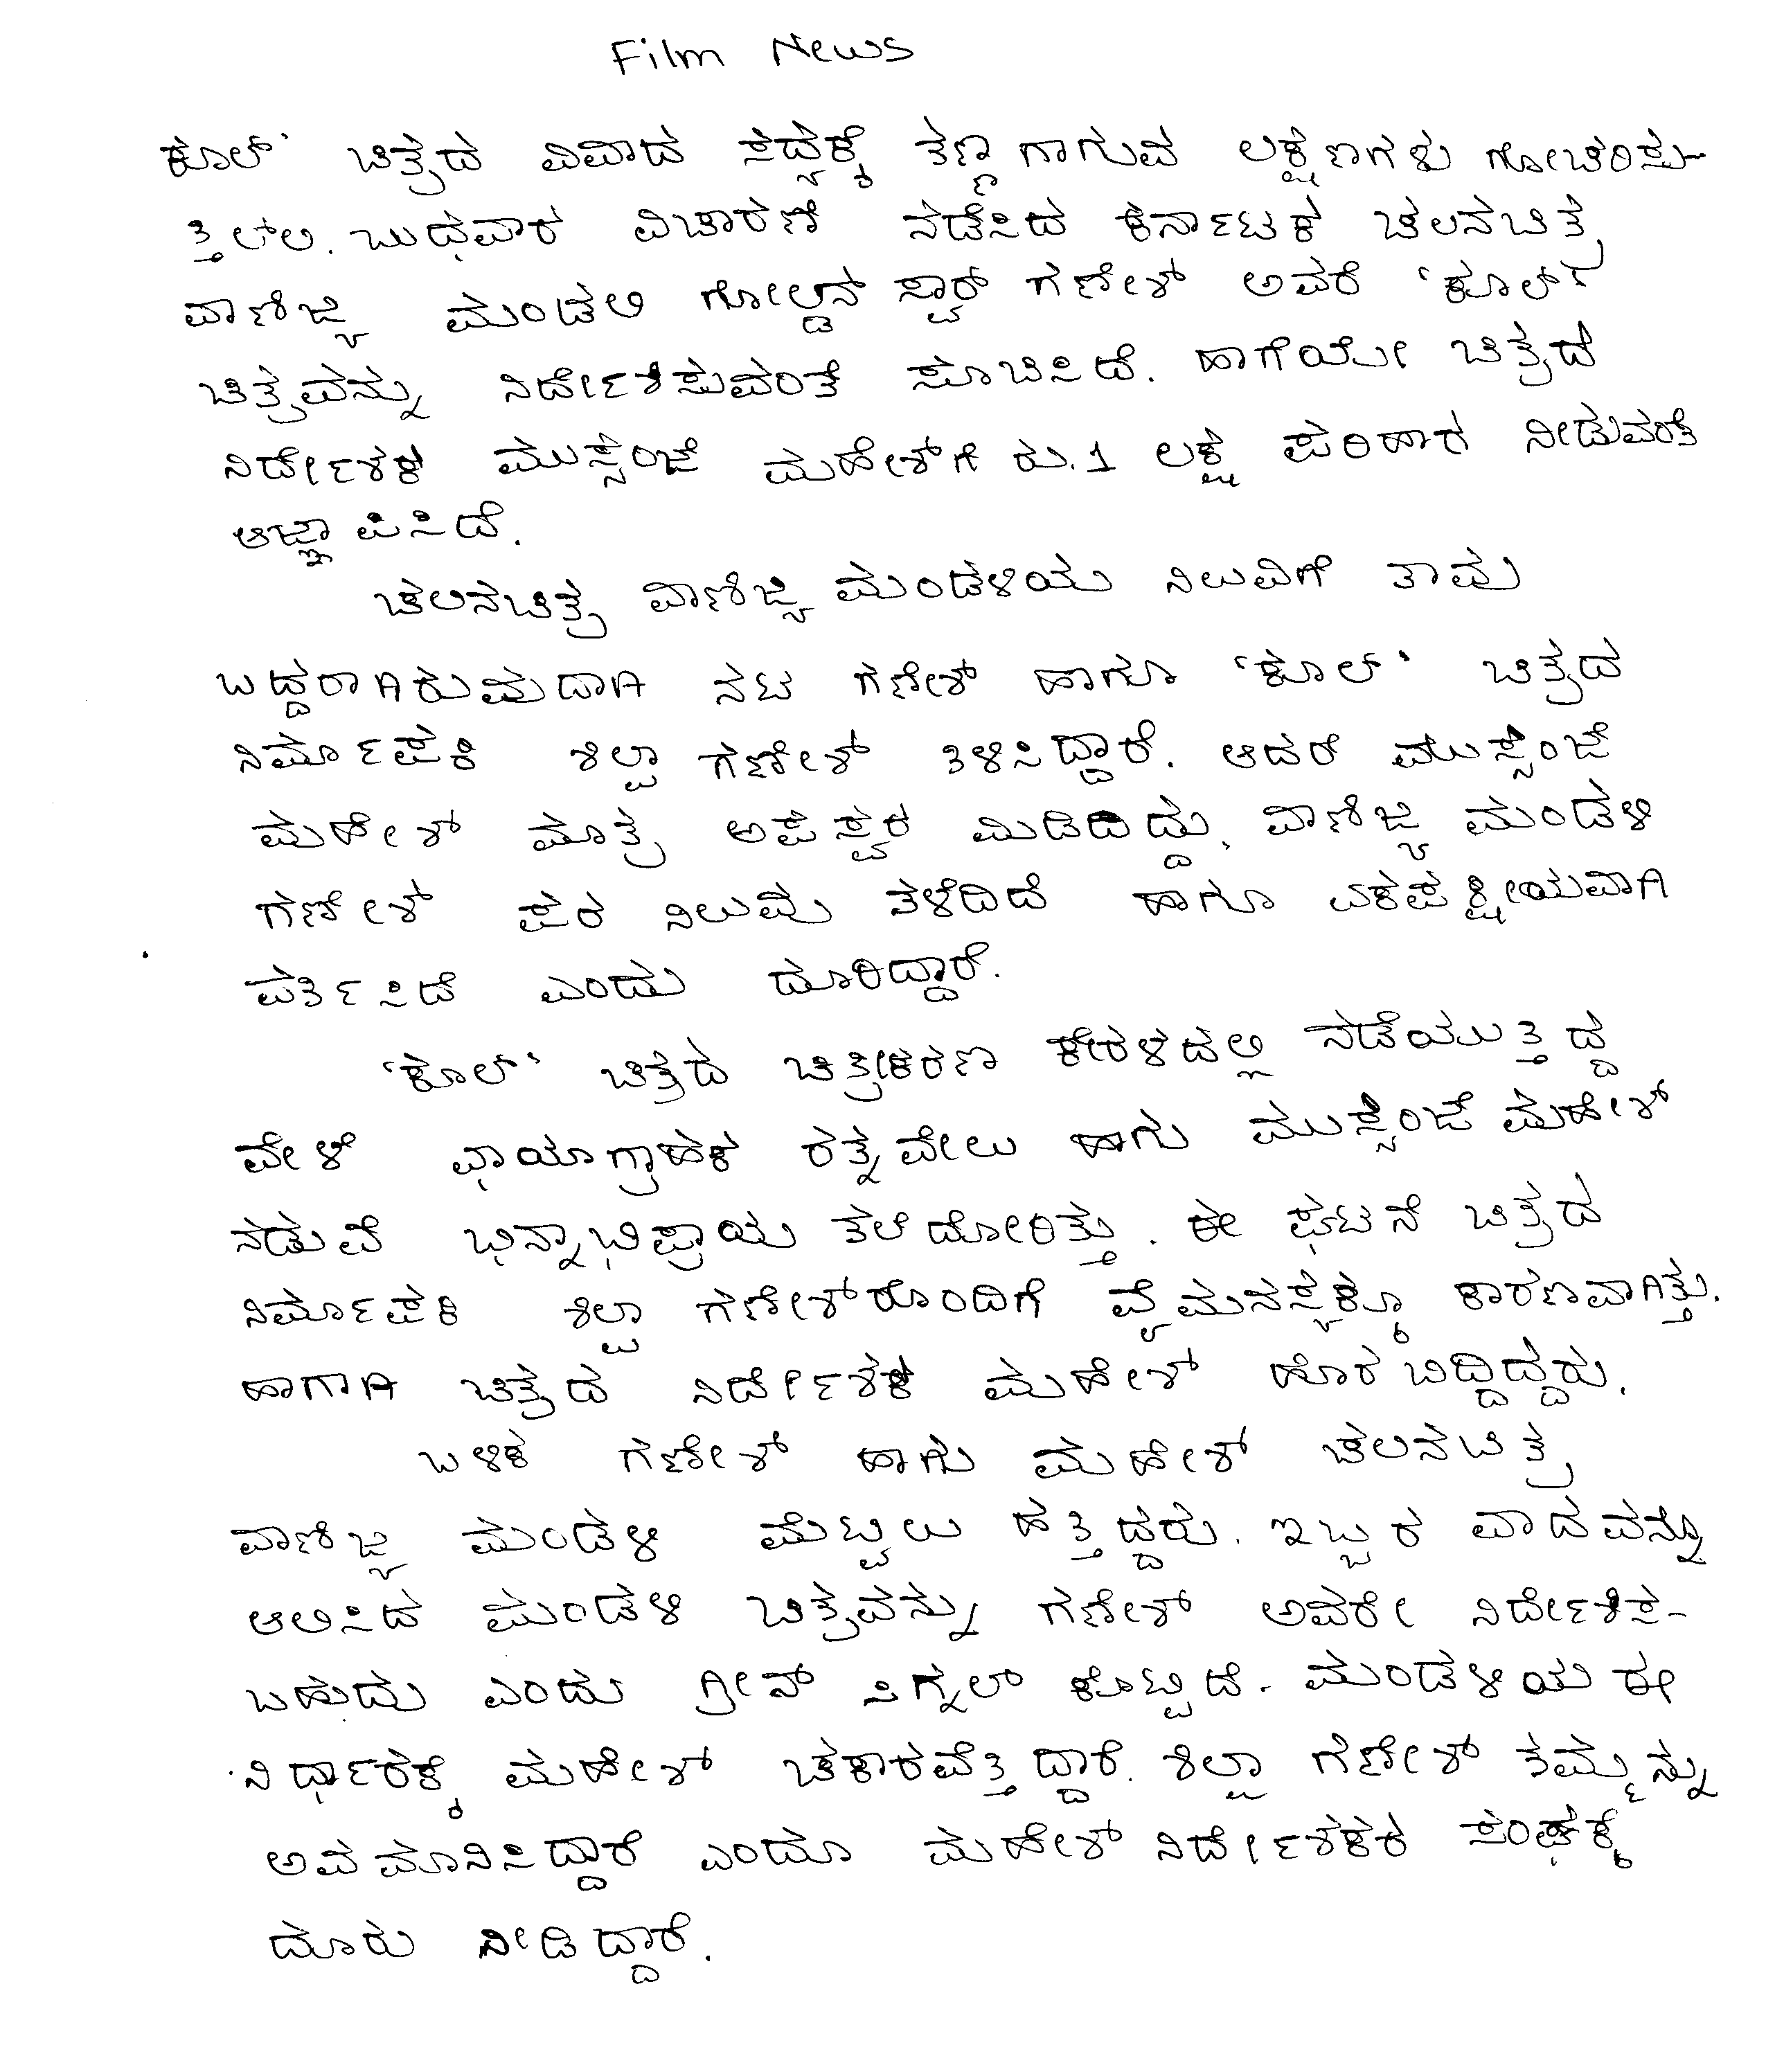 Film News
ಕೂಲ್' ಚಿತ್ರದ ವಿವಾದ ಸದ್ಯಕ್ಕೆ ತಣ್ಣಗಾಗುವ ಲಕ್ಷಣಗಳು ಗೋಚರಿಸು-
ತ್ತಿಲ್ಲ. ಬುಧವಾರ ವಿಚಾರಣೆ ನಡೆಸಿದ ಕರ್ನಾಟಕ ಚಲನಚಿತ್ರ
ವಾಣಿಜ್ಯ ಮಂಡಳಿ ಗೋಲ್ಡನ್ ಸ್ಟಾರ್ ಗಣೇಶ್ ಅವರೆ 'ಕೂಲ್'
ಚಿತ್ರವನ್ನು ನಿರ್ದೇಶಿಸುವಂತೆ ಸೂಚಿಸಿದೆ. ಹಾಗೆಯೇ ಚಿತ್ರದ
ನಿರ್ದೇಶಕ ಮುಸ್ಸಂಜೆ ಮಹೇಶ್‌ಗೆ ರು.1 ಲಕ್ಷ ಪರಿಹಾರ ನೀಡುವಂತೆ
ಆಜ್ಞಾಪಿಸಿದೆ.
ಚಲನಚಿತ್ರ ವಾಣಿಜ್ಯ ಮಂಡಳಿಯ ನಿಲುವಿಗೆ ತಾವು
ಬದ್ದರಾಗಿರುವುದಾಗಿ ನಟ ಗಣೇಶ್ ಹಾಗೂ 'ಕೂಲ್' ಚಿತ್ರದ
ನಿರ್ಮಾಪಕಿ ಶಿಲ್ಪಾ ಗಣೇಶ್ ತಿಳಿಸಿದ್ದಾರೆ. ಆದರೆ ಮುಸ್ಸಂಜೆ
ಮಹೇಶ್ ಮಾತ್ರ ಅಪಸ್ವರ ಮಿಡಿದಿದ್ದು, ವಾಣಿಜ್ಯ ಮಂಡಳಿ
ಗಣೇಶ್ ಪರ ನಿಲುವು ತಳೆದಿದೆ ಹಾಗೂ ಏಕಪಕ್ಷೀಯವಾಗಿ
ವರ್ತಿಸಿದೆ ಎಂದು ದೂರಿದ್ದಾರೆ.
'ಕೂಲ್' ಚಿತ್ರದ ಚಿತ್ರೀಕರಣ ಕೇರಳದಲ್ಲಿ ನಡೆಯುತ್ತಿದ್ದ
ವೇಳೆ ಛಾಯಾಗ್ರಾಹಕ ರತ್ನವೇಲು ಹಾಗು ಮುಸ್ಸಂಜೆ ಮಹೇಶ್
ನಡುವೆ ಭಿನ್ನಾಭಿಪ್ರಾಯ ತಲೆದೋರಿತ್ತು. ಈ ಘಟನೆ ಚಿತ್ರದ
ನಿರ್ಮಾಪಕಿ ಶಿಲ್ಪಾ ಗಣೇಶ್‌ರೊಂದಿಗೆ ವೈಮನಸ್ಯಕ್ಕೂ ಕಾರಣವಾಗಿತ್ತು.
ಹಾಗಾಗಿ ಚಿತ್ರದ ನಿರ್ದೇಶಕ ಮಹೇಶ್ ಹೊರಬಿದ್ದಿದ್ದರು.
ಬಳಿಕ ಗಣೇಶ್ ಹಾಗು ಮಹೇಶ್ ಚಲನಚಿತ್ರ
ವಾಣಿಜ್ಯ ಮಂಡಳಿ ಮೆಟ್ಟಿಲು ಹತ್ತಿದ್ದರು. ಇಬ್ಬರ ವಾದವನ್ನೂ
ಆಲಿಸಿದ ಮಂಡಳಿ ಚಿತ್ರವನ್ನು ಗಣೇಶ್ ಅವರೇ ನಿರ್ದೇಶಿಸ-
ಬಹುದು ಎಂದು ಗ್ರೀನ್ ಸಿಗ್ನಲ್ ಕೊಟ್ಟಿದೆ. ಮಂಡಳಿಯ ಈ
ನಿರ್ಧಾರಕ್ಕೆ ಮಹೇಶ್ ಚಕಾರವೆತ್ತಿದ್ದಾರೆ. ಶಿಲ್ಪಾ ಗಣೇಶ್ ತಮ್ಮನ್ನು
ಅವಮಾನಿಸಿದ್ದಾರೆ ಎಂದೂ ಮಹೇಶ್ ನಿರ್ದೇಶಕರ ಸಂಘಕ್ಕೆ
ದೂರು ನೀಡಿದ್ದಾರೆ.